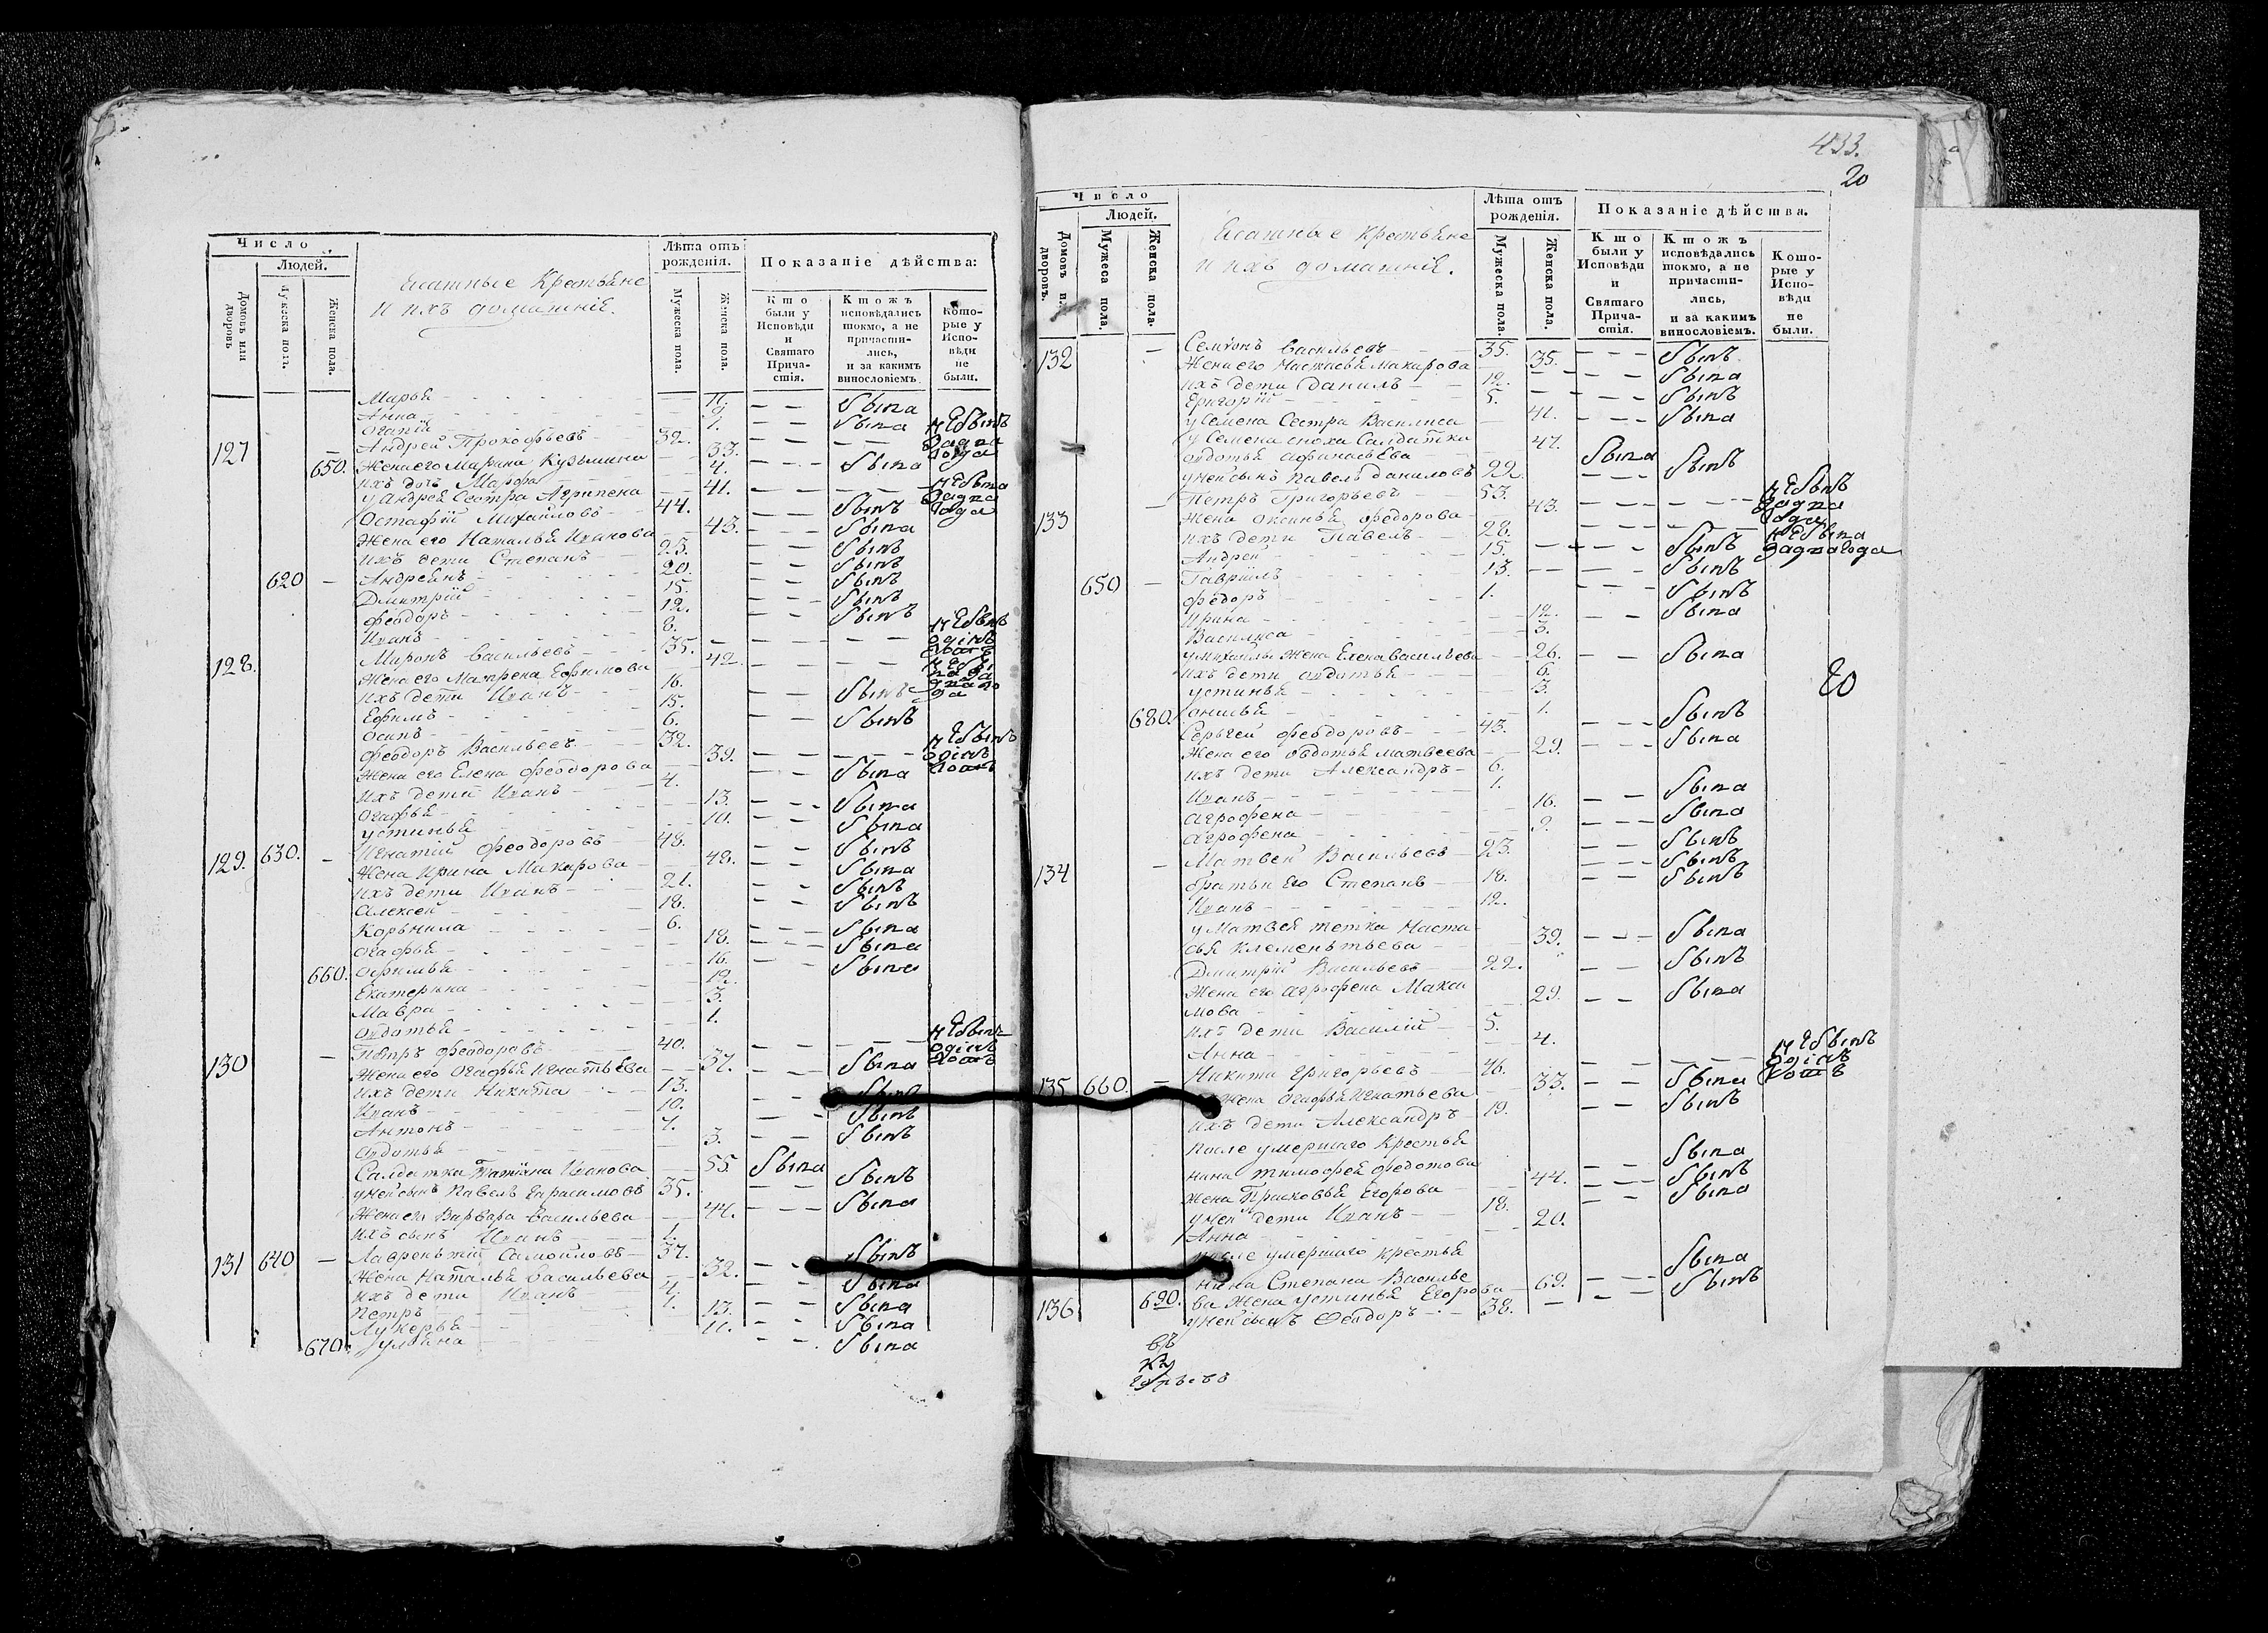 Число
Людей.
Домовъ или дворовъ.
Мужеска полъ.
Женска пола.
Ясашные Крестьяне
и ихъ домашнія.
Лѣта отъ рожденія.
Мужеска пола.
Женска пола.
Показаніе дѣйства:
Кто были у Исповѣди и Святаго Прича-стія.
Ктожъ исповѣдались токмо, а не причасти-лись, и за какимъ винословіемъ.
Кото-рые у Испо-вѣди не были.
Марья 11. былa
Анна 9. была
1.
127 Андрей Прокофьевъ 32. небылъ
650. Жена его Марина Кузьмина 33. была
ихъ дочь Марфа 4.
у Андрея Сестра Агрипена 41. небыла
Остафій Михайловъ 44. былъ
Жена его Наталья Иванова 43. была
ихъ дети Степанъ 23. былъ
620 Андреянъ 20. былъ
Дмитрій 15. былъ
Феодоръ 12. былъ
Иванъ 8. былъ
128. Миронъ Васильевъ 35. небылъ
Жена его Матрена Ефимова 42.
ихъ дети Иванъ 16. былъ
Ефимъ 15. былъ
Осипъ 6.
Феодоръ Васильевъ 32. небылъ
Жена его Елена Феодорова 39. была
ихъ дети Иванъ 4.
Огафья 13. была
Устинья 10. была
129. 630. Игнатій Феодоровъ 48. былъ
Жена Ирина Макарова 48. была
ихъ дети Иванъ 21. былъ
Алексей 18. былъ
Корнила 6.
Огафья 18. была
660. Офимья 16. была
Екатерина 12. была
Мавра 3.
Овдотья 1.
130 Петръ Феодоровъ 40. небылъ
Жена его Огафья Игнатьева 37. была
ихъ дети Никита 13. былъ
Иванъ 10. былъ
Антонъ 7. былъ
Овдотья 3.
Салдатка Татіана Иванова 55 была
у ней сынъ Павелъ Герасимовъ 35. былъ
Жена его Варвара Васильева 44. была
ихъ сынъ Иванъ 1.
131 640 Лаврентій Самойловъ 37. былъ
Жена Наталья Васильева 32. была
ихъ дети Иванъ 4.
Петръ 1.
Лукерья 13. была
670. Ульяна 11. была
433.
20
Число
Людей.
Домовъ или дворовъ.
Мужеса пола.
Женска пола.
Ясашные крестьяне
и ихъ домашнія.
Лѣта отъ рожденія.
Мужеска пола.
Женска пола.
Показаніе дѣйства.
Кто были у Исповѣди и Святаго Прича-стія.
Ктожъ исповѣдались токмо, а не причасти-лись, и за какимъ винословіемъ.
Кото-рые у Испо-вѣди не были.
132 Семионъ Васильевъ 35. былъ
Жена его Настасья Макарова 35. была
ихъ дети Данилъ 12. былъ
Григорій 5.
у Семена Сестра Василиса 41. была
у Семена сноха Салдатка
овдотья афанасьева 47. была
у ней сынъ Павелъ Даниловъ 22. былъ
133 Петръ Григорьевъ 53. небылъ
Жена Оксинья Федорова 43. небыла
ихъ дети Павелъ 28. былъ
Андрей 15. былъ
650 Гаврилъ 13. былъ
Федоръ 1.
Ирина 12. была
Василиса 3.
у Михайлы Жена Елена Васильева 26. была
ихъ дети овдотья 6.
устинья 3.
680. 1.
20
Сергей Феодоровъ 43. былъ
Жена его Овдотья Матвеева 29. была
ихъ дети Александръ 6.
Иванъ 1.
агрофена 16. была
агрофена 9. была
134 Матвей Васильевъ 23. былъ
братьи его Степанъ 18. былъ
Иванъ 12. былъ
у Матвея тетка Наста
сья Клементьева 39. была
Дмитрій Васильевъ 22. былъ
Жена его агрофена Макси
мова 29. была
ихъ дети Василій 5.
Анна 4.
135 660. Никита Григорьевъ 46. небылъ
Жена Огафья Игнатьева 33. была
ихъ дети Александръ 19. былъ
После умершаго крестья
нина Тимофея Федотова
Жена Прасковья Егорова 44. была
у ней дети Иванъ 18. былъ
Анна 20. была
После умершаго крестья
нина Степана Василье
ва Жена устинья Егорова 69. была
136 690. у ней сынъ Феодоръ 38. былъ